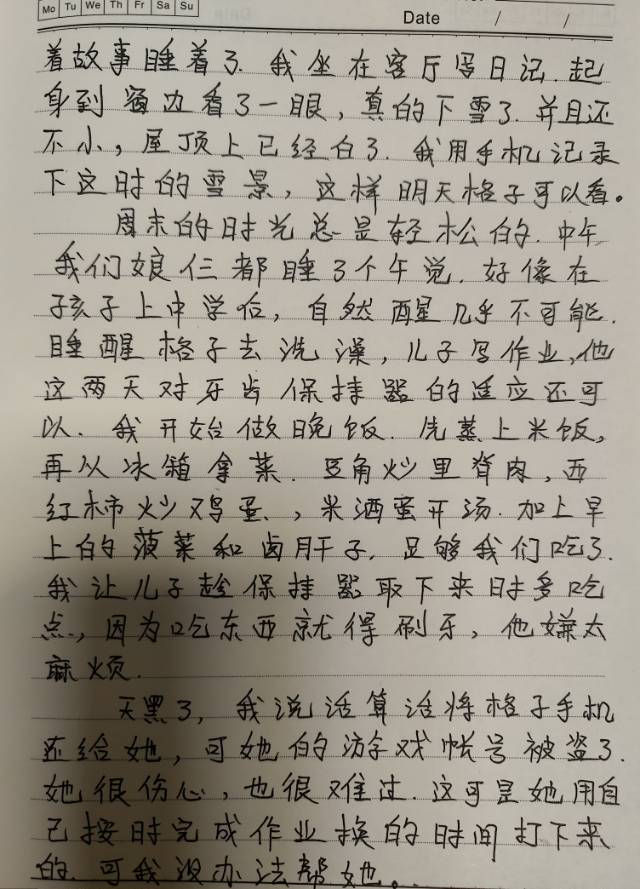 Mo Tu We Th Fr Sa Su
Date / /
着故事睡着了.我坐在客厅写日记.起
身到窗边看了一眼，真的下雪了.并且还
不小，屋顶上已经白了.我用手机记录
下这时的雪景，这样明天格子可以看。
周末的时光总是轻松的.中午
我们娘仨都睡了个午觉.好像在
孩子上中学后，自然醒几乎不可能.
睡醒格子去洗澡，儿子写作业，他
这两天对牙齿保持器的适应还可
以.我开始做晚饭.先蒸上米饭，
再从冰箱拿菜.豆角炒里脊肉，西
红柿炒鸡蛋、，米酒蛋开汤.加上早
上的菠菜和卤肝子.足够我们吃了.
我让儿子趁保持器取下来时多吃
点，因为吃东西就得刷牙，他嫌太
麻烦.
天黑了，我说话算话将格子手机
还给她，可她的游戏帐号被盗了.
她很伤心，也很难过.这可是她用自
己按时完成作业换的时间打下来
的.可我没办法帮她。